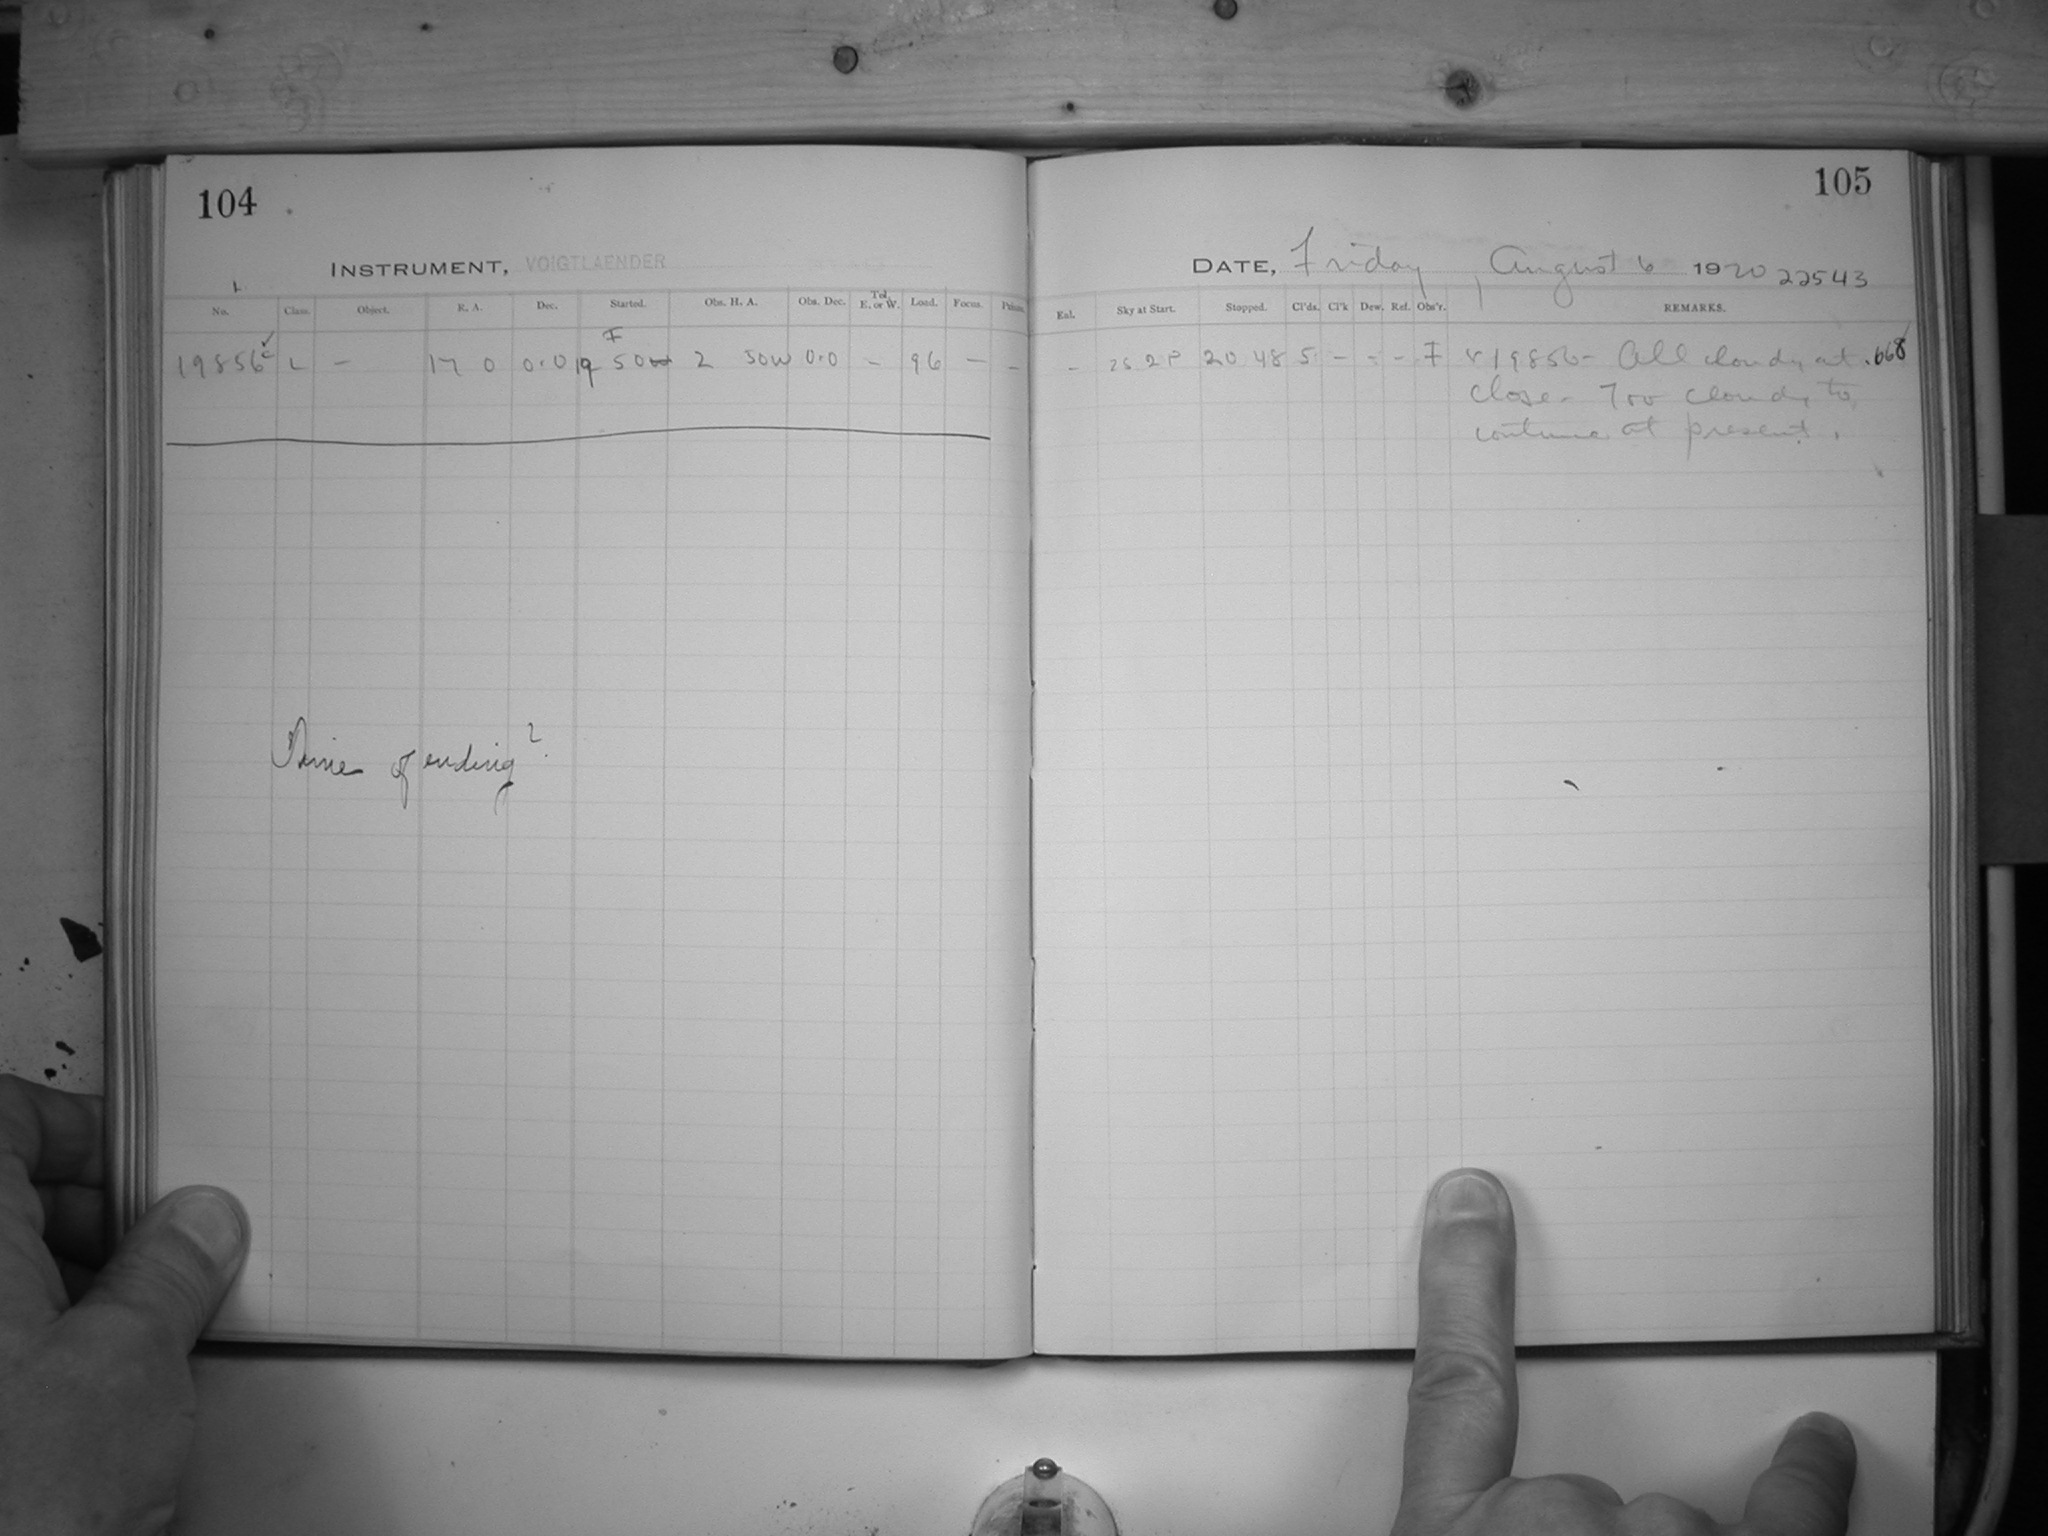 104
INSTRUMENT, VOIGTLAENDER
No. Class. Object. R. A. Dec. Started. Obs. H. A. Obs. Dec. Tel. E. or W. Load. Focus. Prism.
F
19856 L - 17 0 0.0 19 50 2 50W 0.0 - 96 - -
Time of ending?
105
DATE, Friday, August 6 1920 22543
Eal. Sky at Start. Stopped. Cl'ds. Cl'k Dew. Ref. Obs'r. REMARKS.
- 2S 2P 20 48 5 - - - F 19856 - All cloudy at .668
close - Too cloudy to
continue at present.